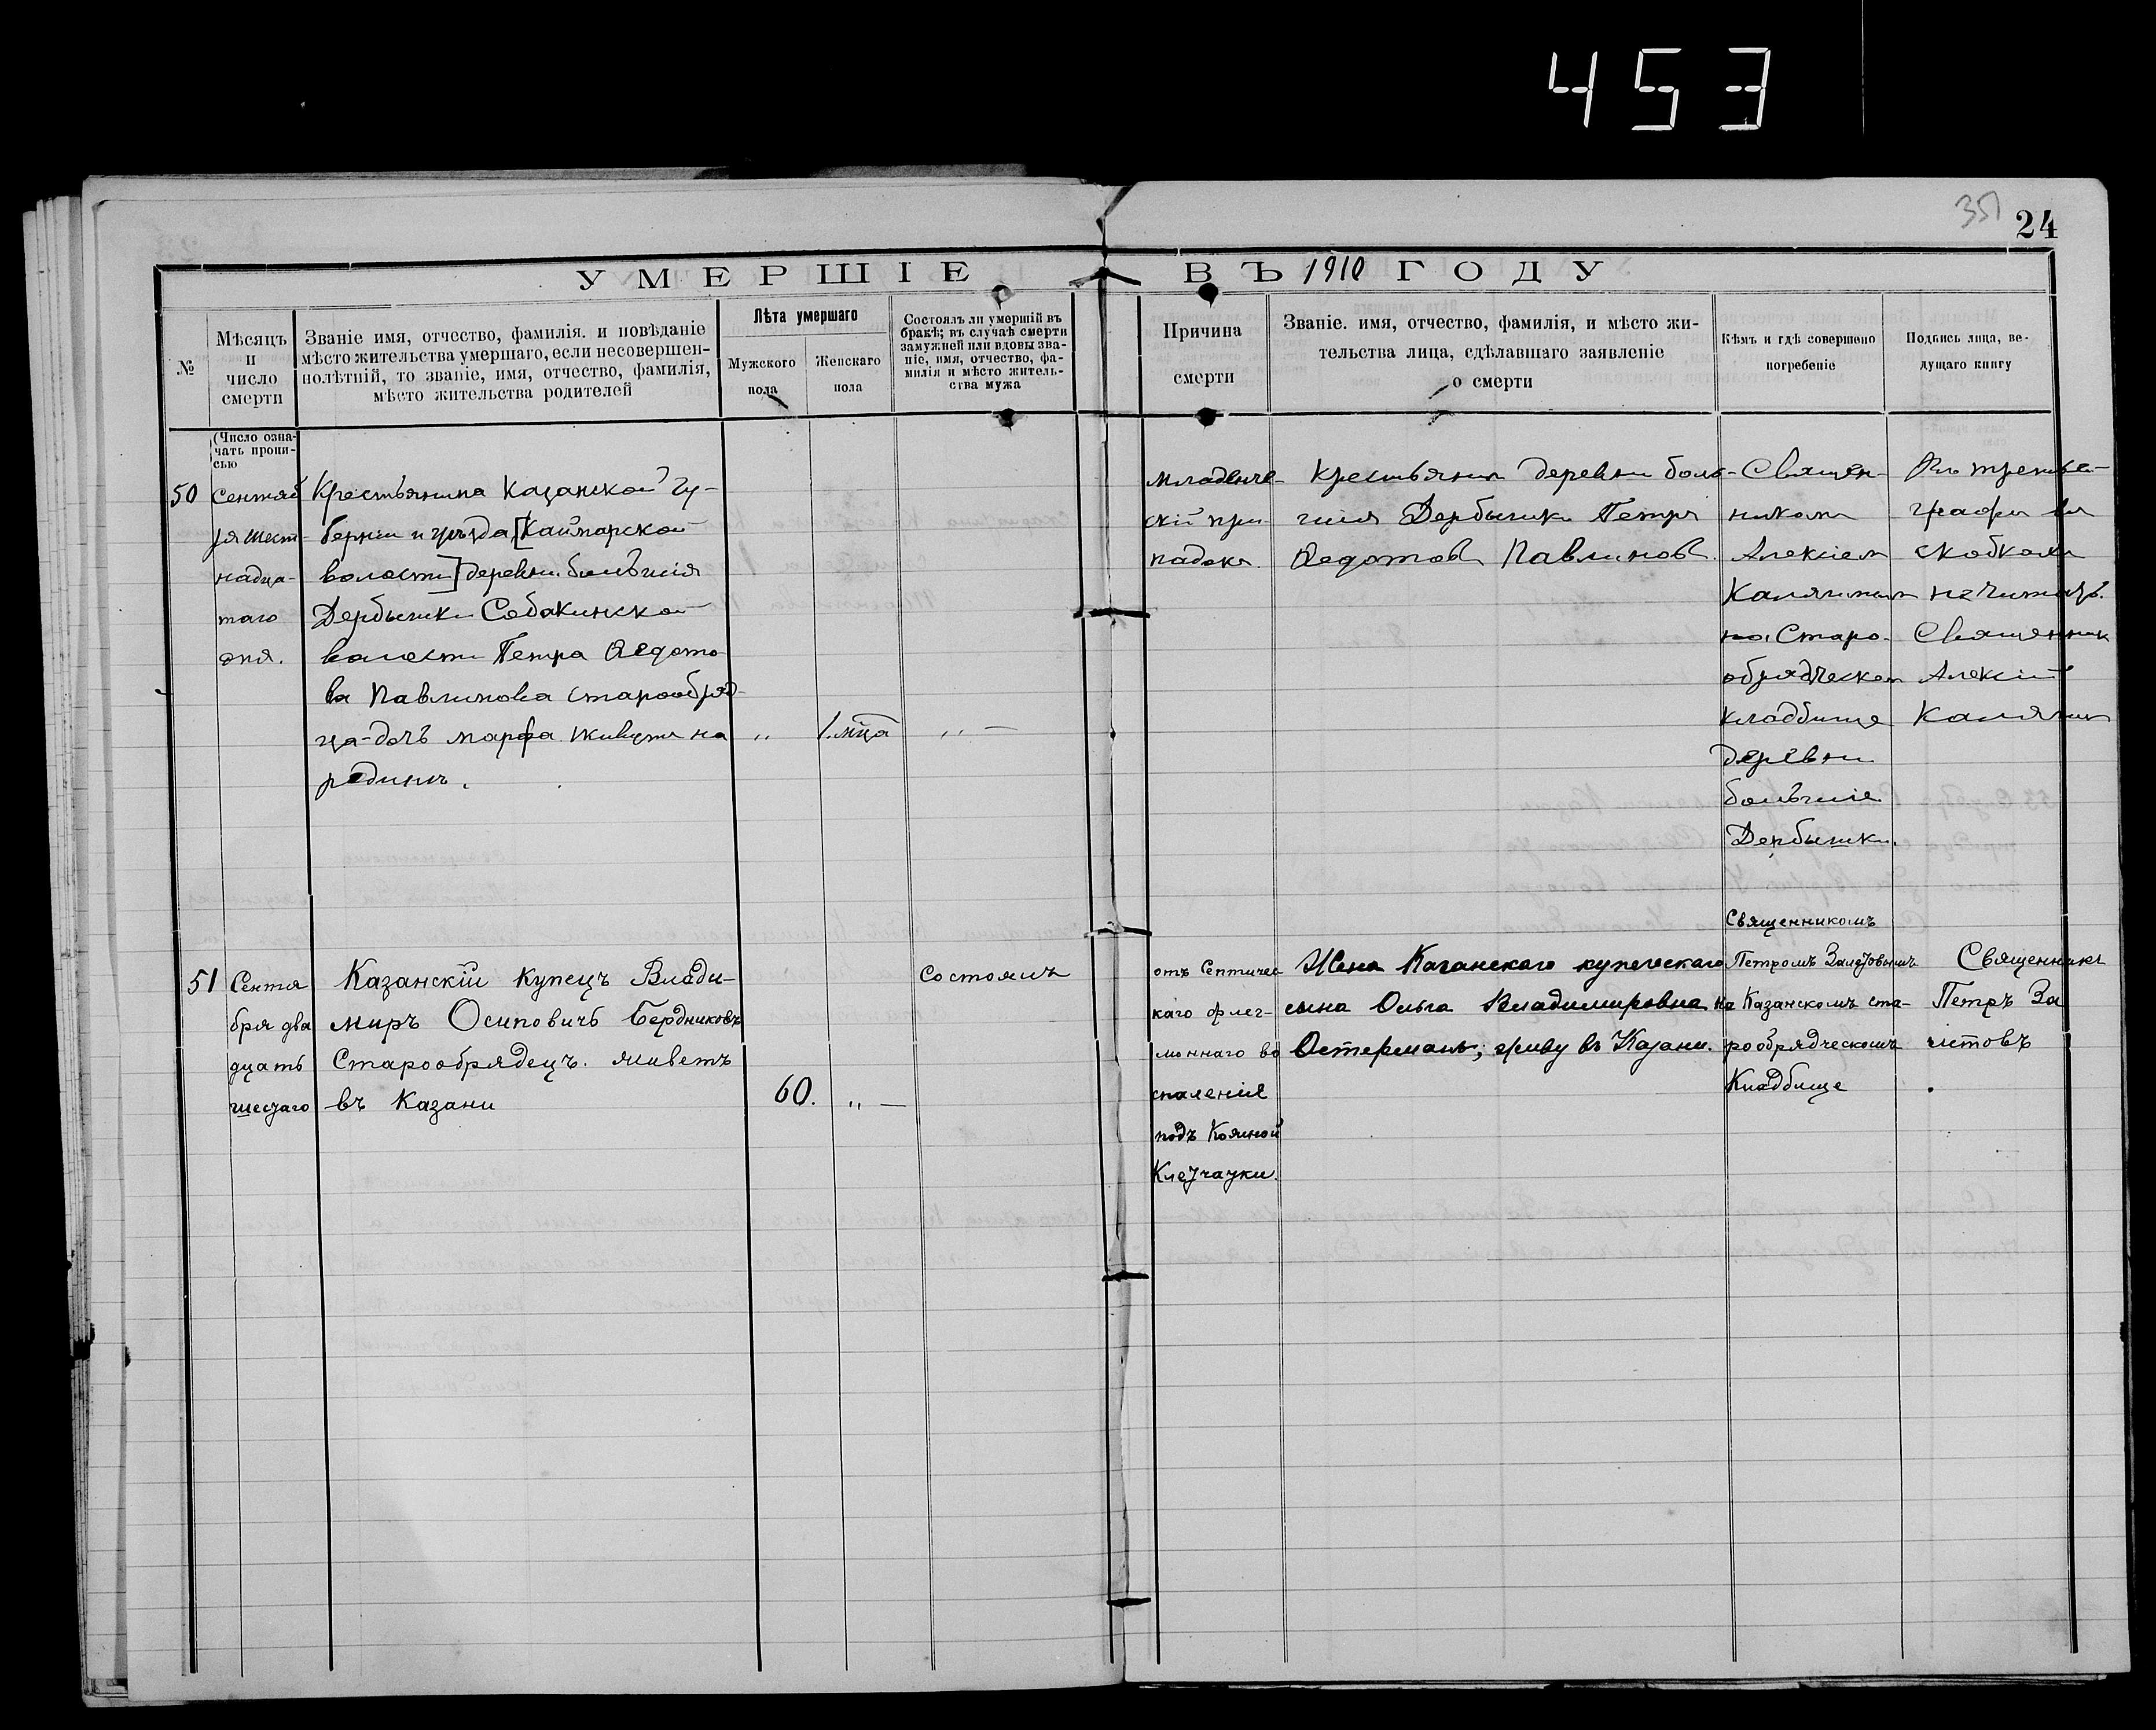 453
351
24
УМЕРШІЕ ВЪ 1910 ГОДУ
№
Мѣсяцъ
и
число
смерти
Званіе имя, отчество, фамилія. и повѣданіе
мѣсто жительства умершаго, если несовершен-
нолѣтній, то званіе, имя, отчество, фамилія,
мѣсто жительства родителей
Лѣта умершаго
Мужского
пола
Женскаго
пола
Состоялъ ли умершій въ
бракѣ; въ случаѣ смерти
замужней или вдовы зва-
ніе, имя, отчество, фа-
милія и мѣсто житель-
ства мужа
Причина
смерти
Званіе. имя, отчество, фамилія, и мѣсто жи-
тельства лица, сдѣлавшаго заявленіе
о смерти
Кѣмъ и гдѣ совершено
погребеніе
Подпись лица, ве-
дущаго книгу
(Число озна-
чать пропи-
сью
50
сентяб
ря шест-
надца-
таго
дня.
Крестьянина Казанской гу-
берніи и уѣзда [Каймарской
волости] деревни большія
Дербышки Собакинской
волости Петра Ѳедото
ва Павлинова старообряд-
ца-дочь марфа живущи на
родинѣ.
„
1. мца
„ —
младенче-
скій при-
падокъ.
крестьянин деревни боль-
шія Дербышки Петръ
Ѳедотовъ Павлиновъ.
Священ-
никомъ
Алексіем
Калягинымъ
на Старо-
обрядческом
кладбище
деревни
большіе
Дербышки.
Въ третьей
графи въ
скобкахъ
не читать.
Священник
Алексій
Калягин
51
Сентя
бря два
дцать
шестаго
Казанскій купецъ Влади-
миръ Осиповичъ Бердниковъ
Старообрядецъ. живетъ
въ Казани
60.
„ —
Состоялъ
отъ Септичес
каго флег-
моннаго во
спаленіе
подъ Кожной
Клетчатки.
Жена Казанскаго купеческаго
сына Ольга Владимировна
Остерманъ; живу въ Казани.
Священникомъ
Петромъ Залетовымъ
на Казанскомъ ста-
рообрядческомъ
Кладбище
Священникъ
Петръ За
летовъ